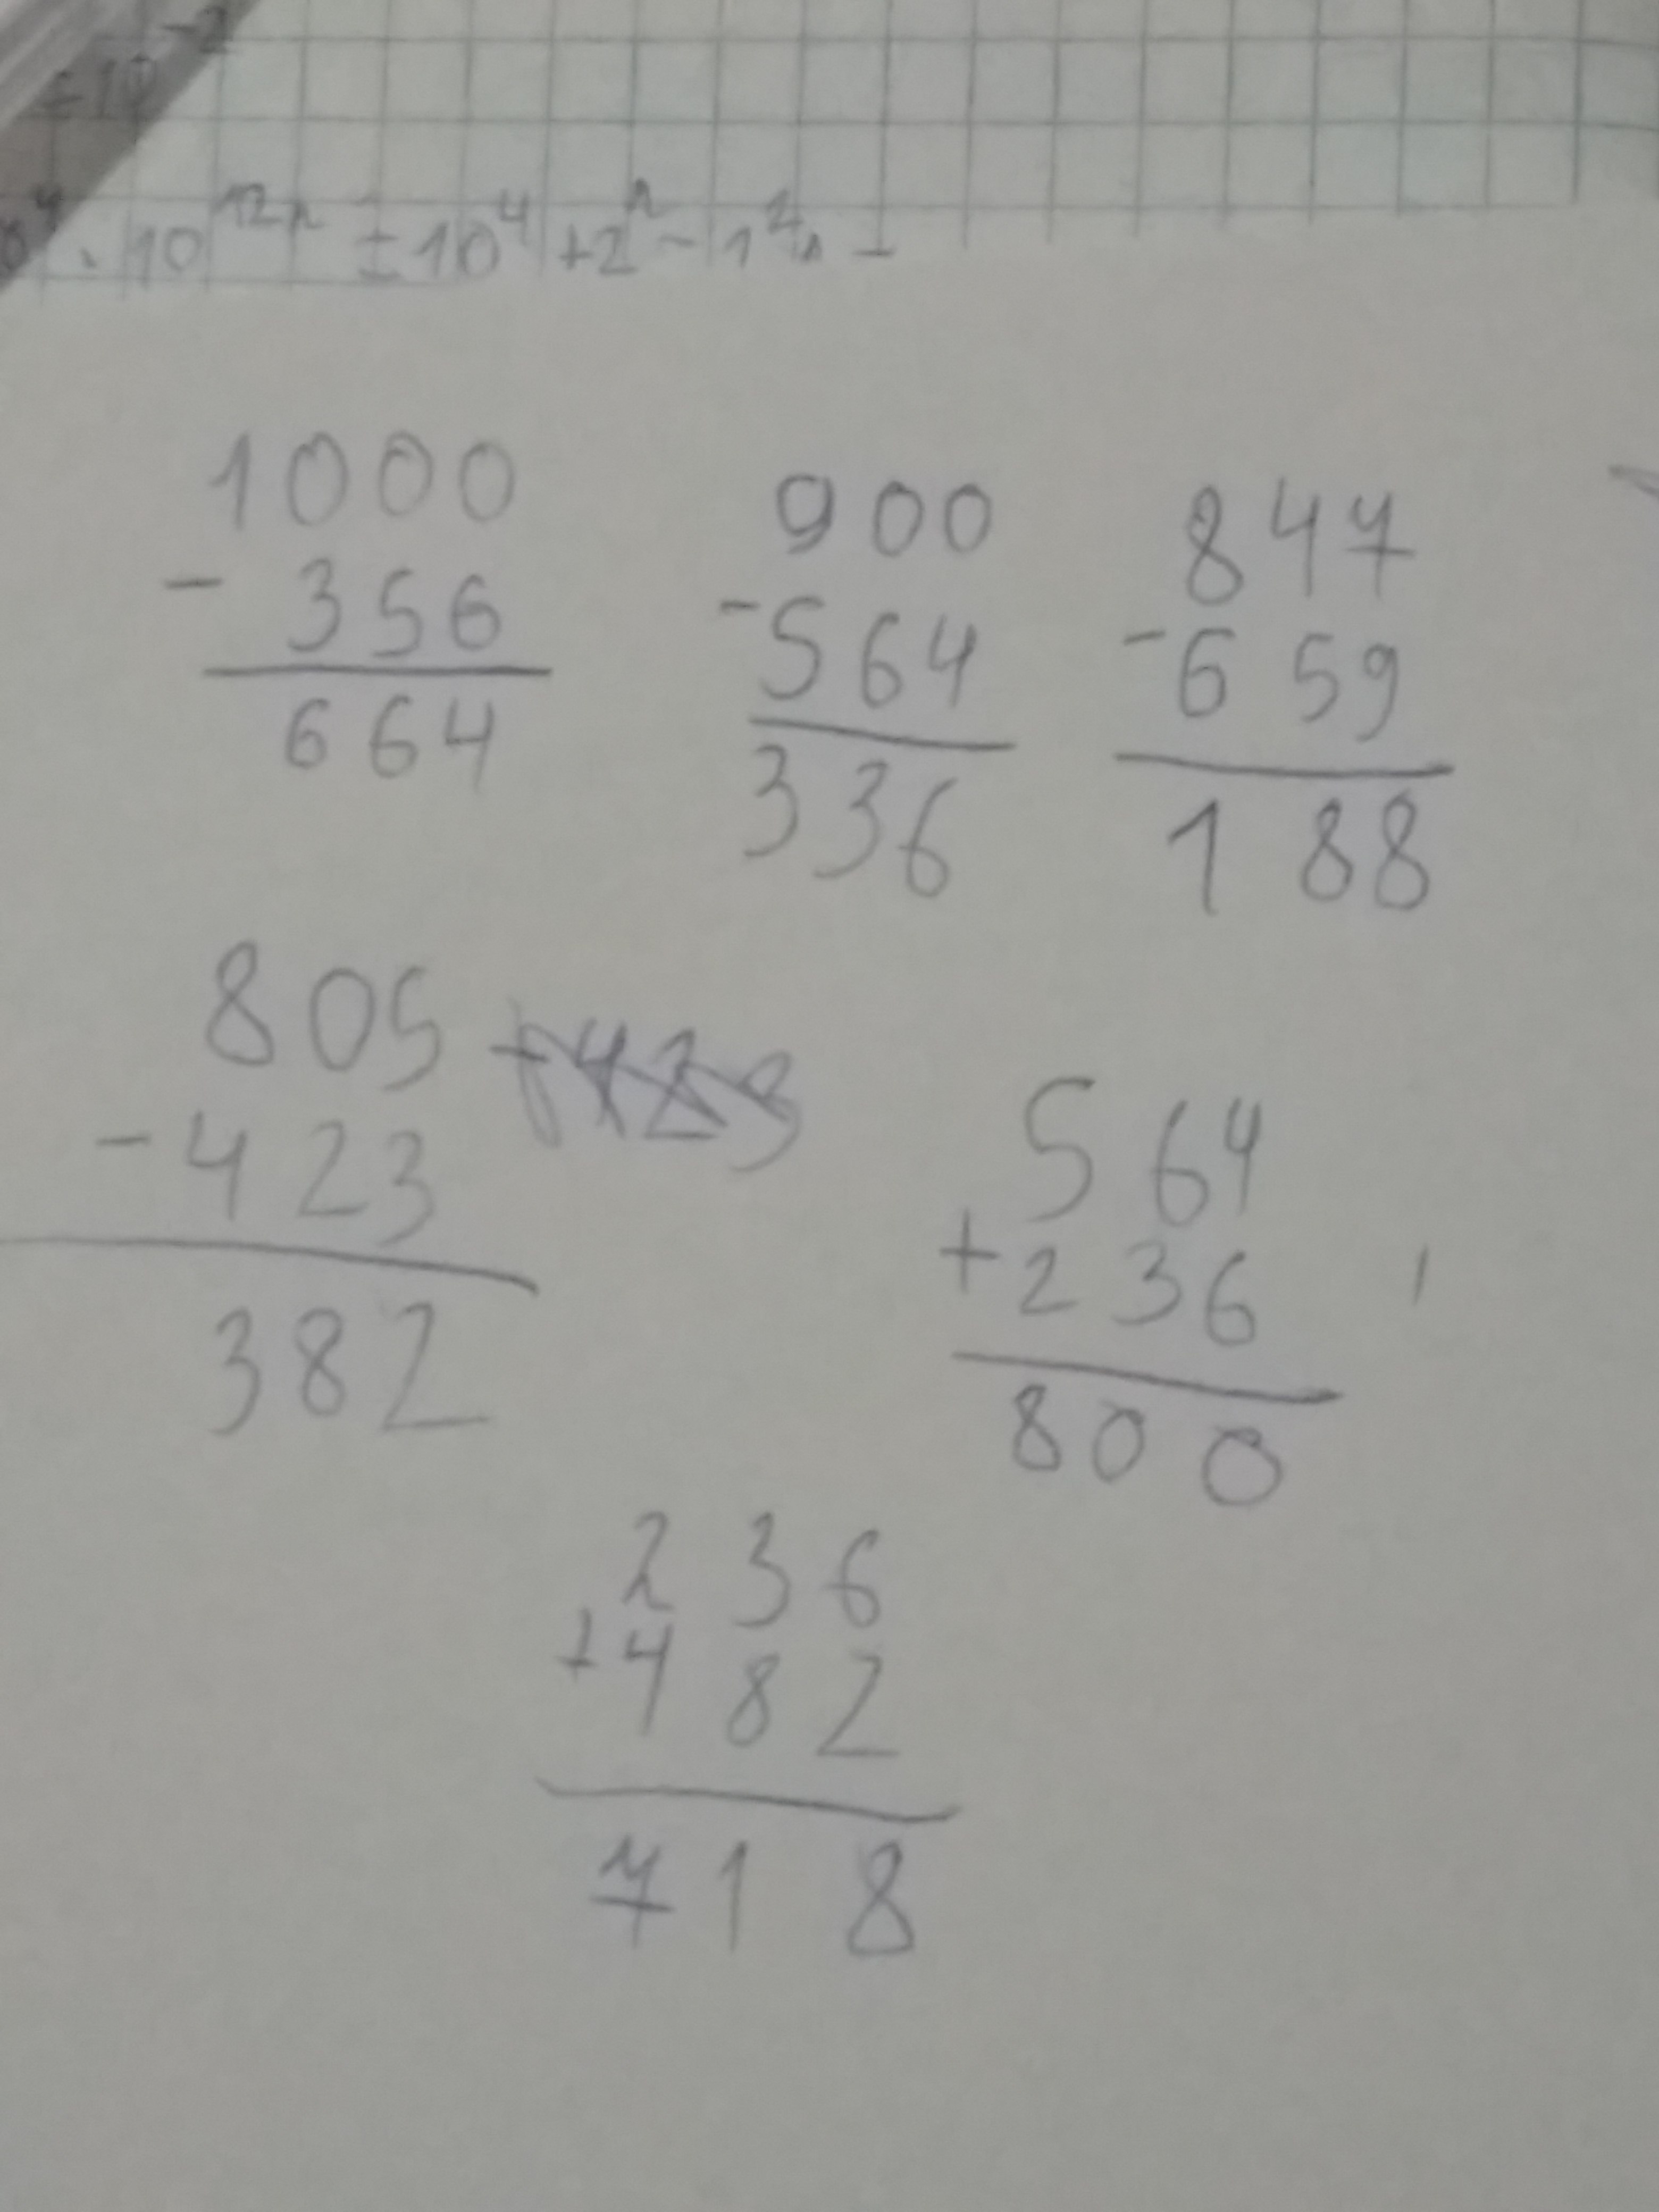 · 10¹²ⁿ = 10⁴ + 2ⁿ - 1²ⁿ -
1000
- 356
664
900
- 564
336
847
- 659
188
805
- 423
382
564
+ 236
800
236
+ 482
718